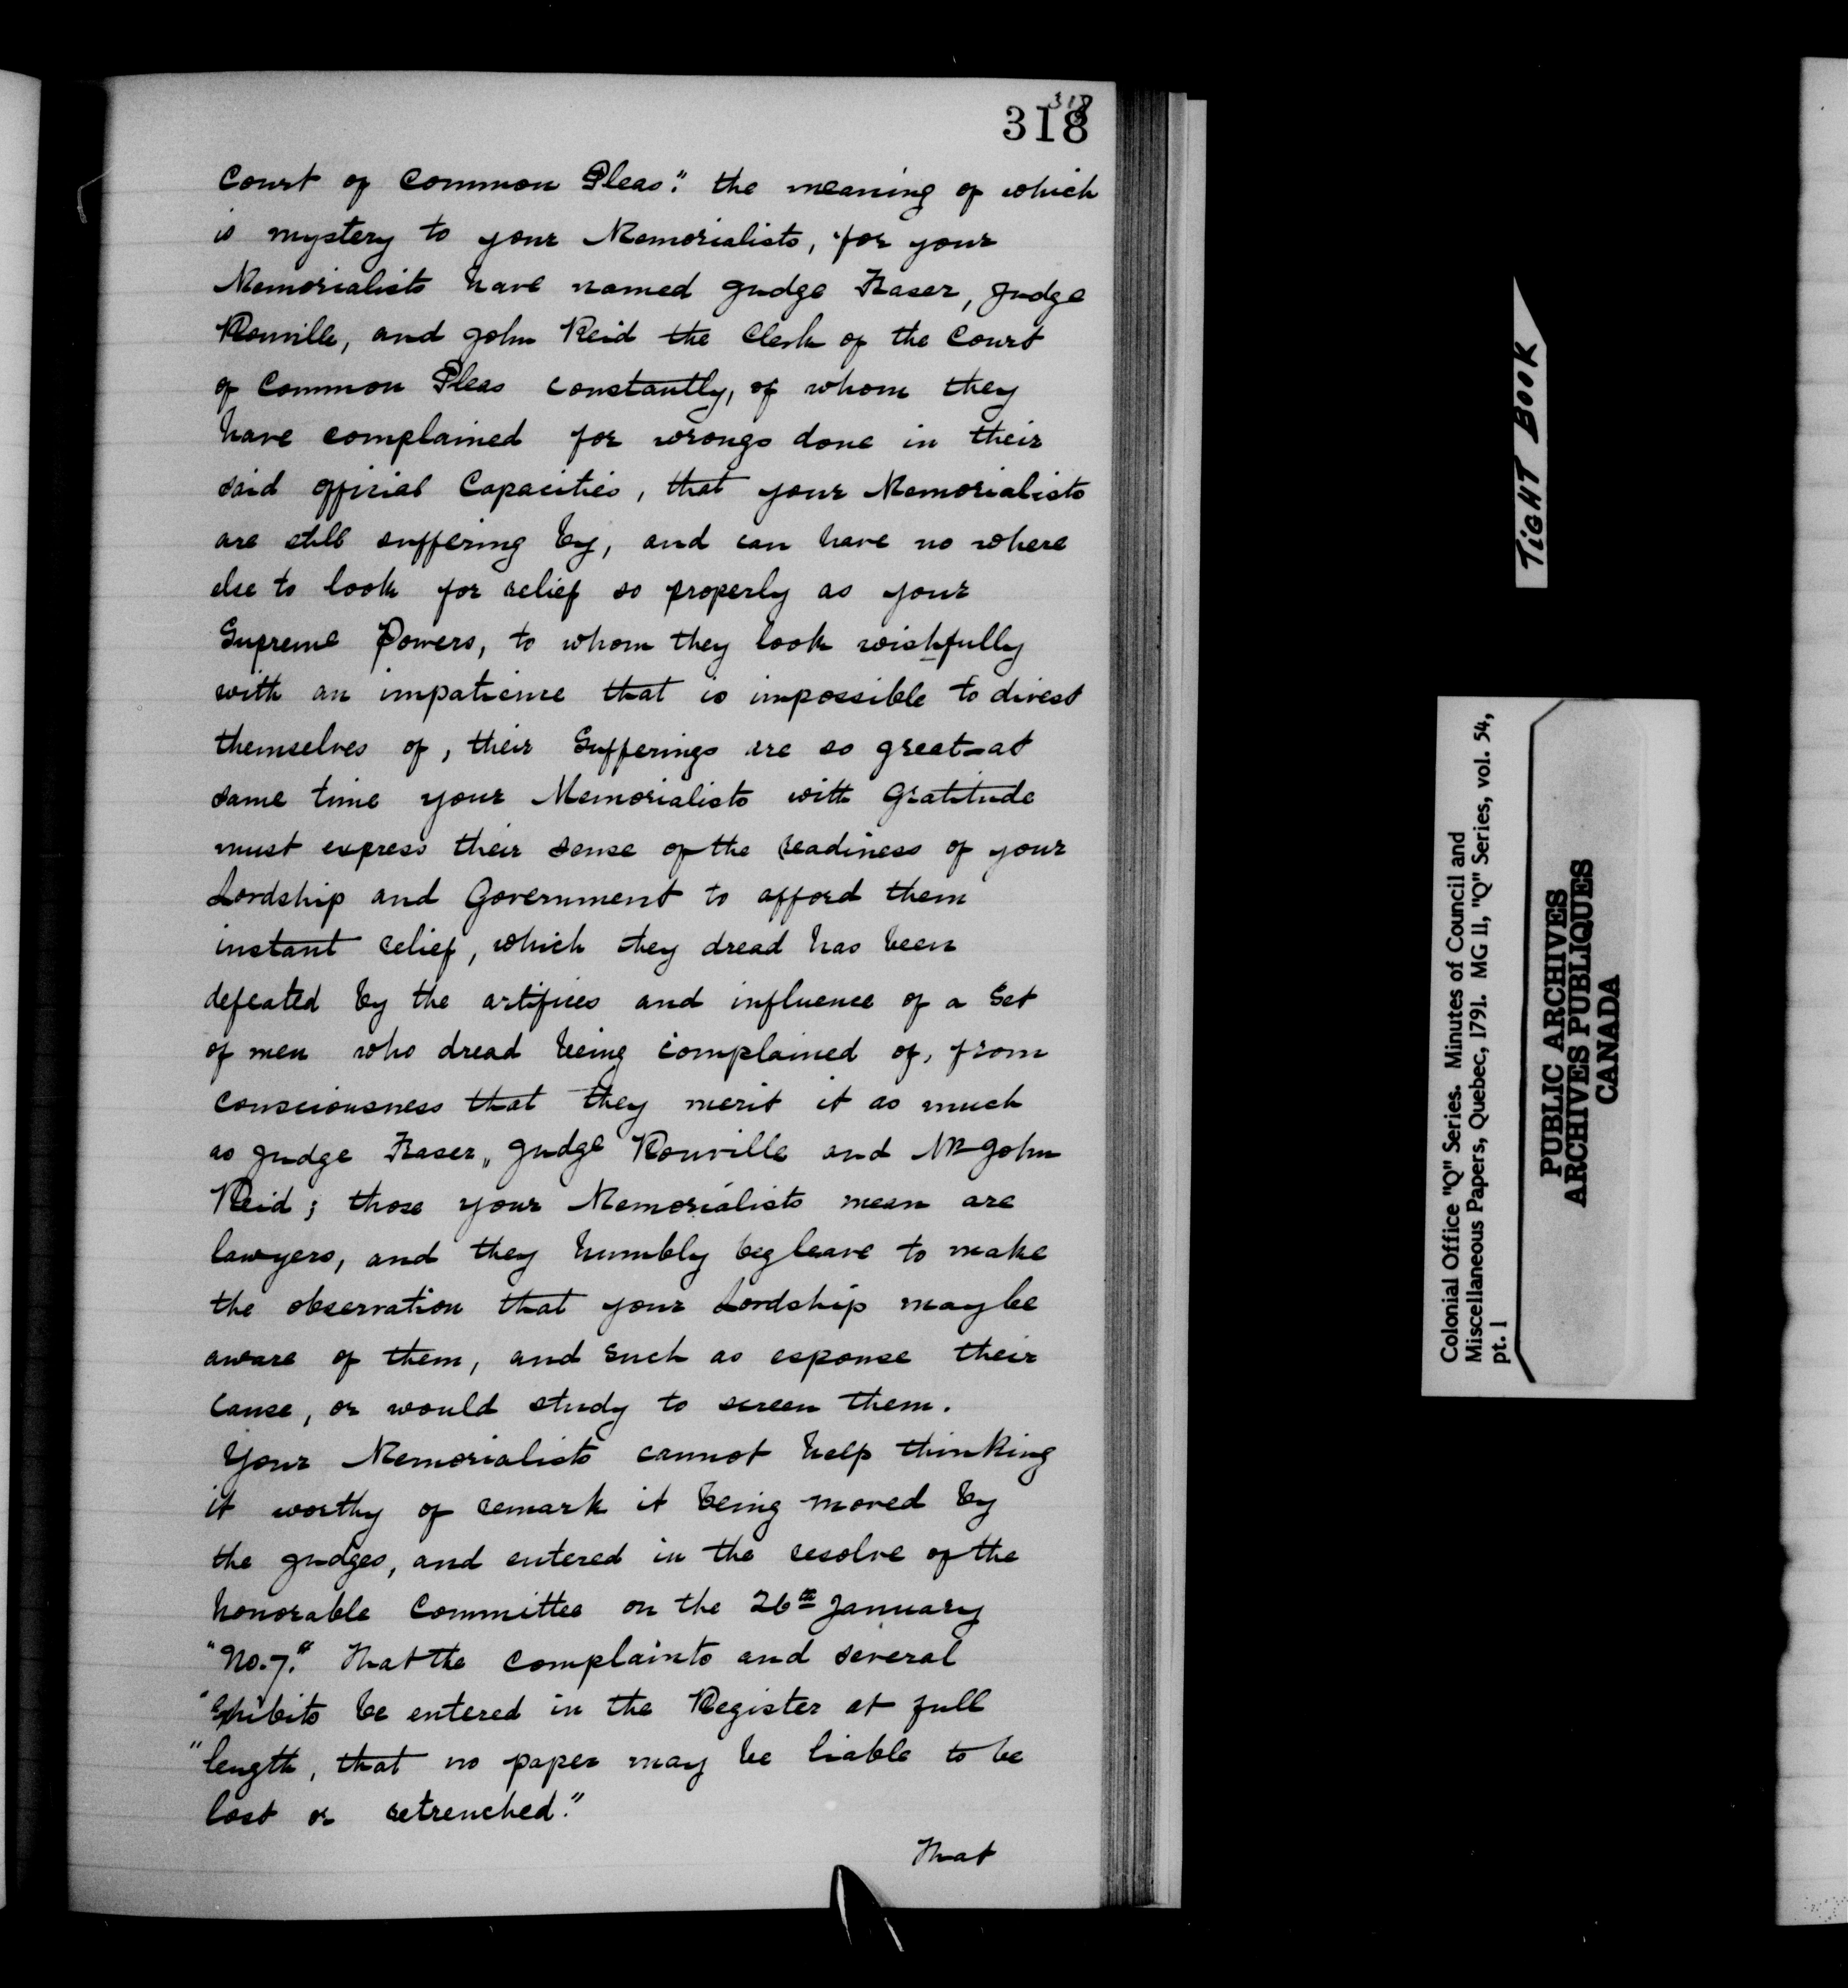 318
318
Court of Common Pleas." the meaning of which
is mystery to your Memorialists, for your
Memorialists have named Judge Fraser, Judge
Rouville, and John Reid the Clerk of the Court
of Common Pleas constantly, of whom they
have complained for wrongs done in their
said official Capacities, that your Memorialists
are still suffering by, and can have no where
else to look for relief so properly as your
Supreme Powers, to whom they look wishfully
with an impatience that is impossible to divest
themselves of, their Sufferings are so great—at
same time your Memorialists with Gratitude
must express their sense of the readiness of your
Lordship and Government to afford them
instant relief, which they dread has been
defeated by the artifices and influence of a Set
of men who dread being complained of, from
consciousness that they merit it as much
as Judge Fraser, Judge Rouville and Mr John
Reid; those your Memorialists mean are
lawyers, and they humbly beg leave to make
the observation that your Lordship may be
aware of them, and such as espouse their
cause, or would study to screen them.
Your Memorialists cannot help thinking
it worthy of remark it being moved by
the Judges, and entered in the resolve of the
honorable Committee on the 26th January
"No. 7." That the complaints and several
"Exhibits be entered in the Register at full
"length, that no paper may be liable to be
lost or retrenched."
That
TIGHT BOOK
Colonial Office "Q" Series. Minutes of Council and
Miscellaneous Papers, Quebec, 1791. MG 11, "Q" Series, vol. 54,
pt. 1
PUBLIC ARCHIVES
ARCHIVES PUBLIQUES
CANADA